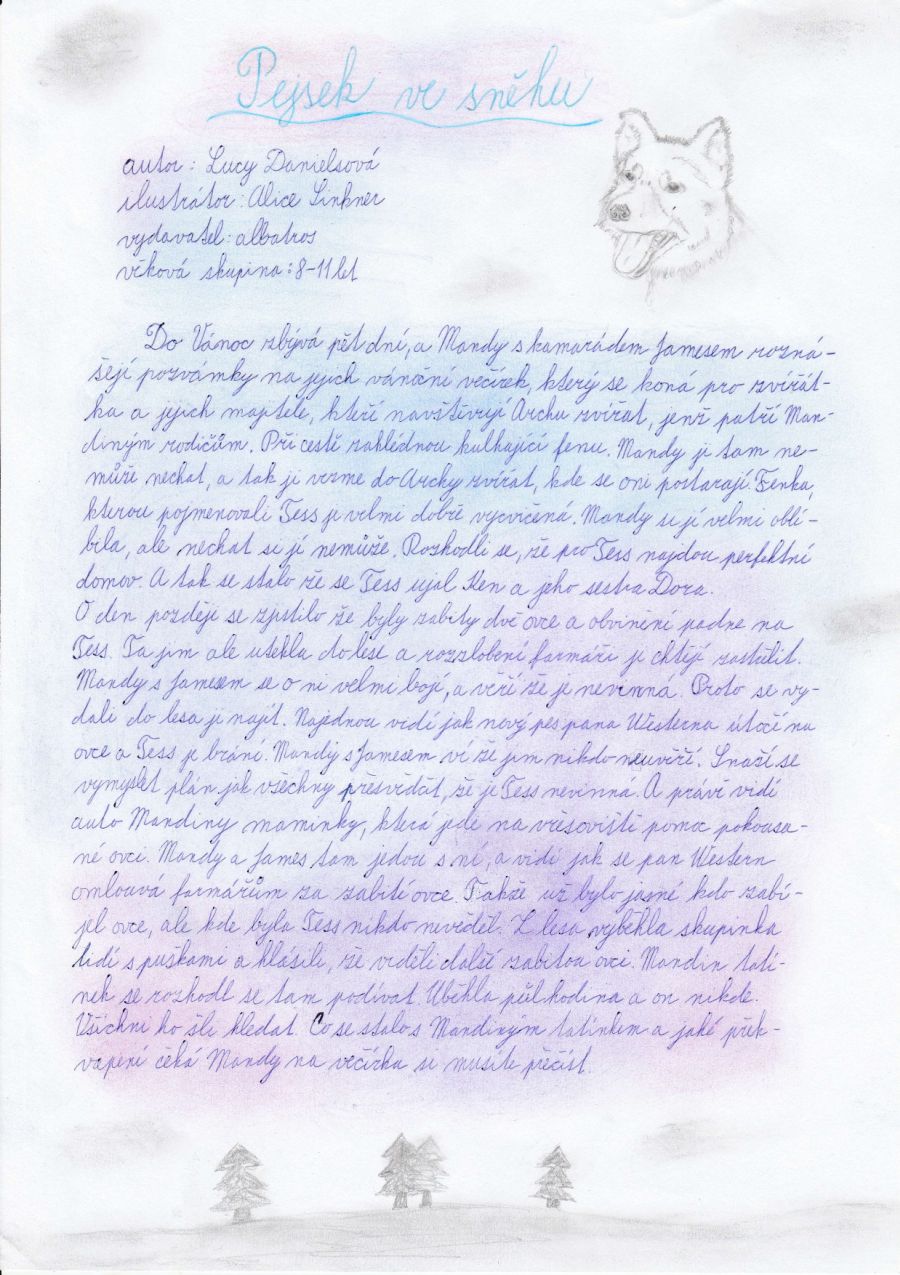 Pejsek ve sněhu
autor: Lucy Danielsová
ilustrátor: Alice Linkner
vydavatel: albatros
věková skupina: 8-11 let
Do Vánoc zbývá pět dní, a Mandy s kamarádem Jamesem rozná-
šejí pozvánky na jejich vánoční večírek, který se koná pro zvířát-
ka a jejich majitele, kteří navštěvují Archu zvířat, jenž patří Man-
diným rodičům. Při cestě zahlédnou kulhající fenu. Mandy ji tam ne-
může nechat, a tak ji vezme do Archy zvířat, kde se oni postarají. Fenka,
kterou pojmenovali Tess je velmi dobře vycvičená. Mandy si jí velmi oblí-
bila, ale nechat si jí nemůže. Rozhodli se, že pro Tess najdou perfektní
domov. A tak se stalo že se Tess ujal Ken a jeho sestra Dora.
O den později se zjistilo že byly zabity dvě ovce a obvinění padne na
Tess. Ta jim ale utekla do lesa a rozzlobení farmáři ji chtějí zastřelit.
Mandy s Jamesem se o ni velmi bojí, a věří že je nevinná. Proto se vy-
dali do lesa ji najít. Najednou vidí jak nový pes pana Westerna útočí na
ovce a Tess je brání. Mandy s Jamesem ví že jim nikdo neuvěří. Snaží se
vymyslet plán jak všechny přesvědčit, že je Tess nevinná. A právě vidí
auto Mandiny maminky, která jede na vřesoviště pomoc pokousa-
né ovci. Mandy a James tam jedou s ní, a vidí jak se pan Western
omlouvá farmářům za zabité ovce. Takže už bylo jasné kdo zabí-
jel ovce, ale kde byla Tess nikdo nevěděl. Z lesa vyběhla skupinka
lidí s puškami a hlásili, že viděli další zabitou ovci. Mandin tatí-
nek se rozhodl se tam podívat. Uběhla půlhodina a on nikde.
Všichni ho šli hledat. Co se stalo s Mandiným tatínkem a jaké přek-
vapení čeká Mandy na večírku si musíte přečíst.